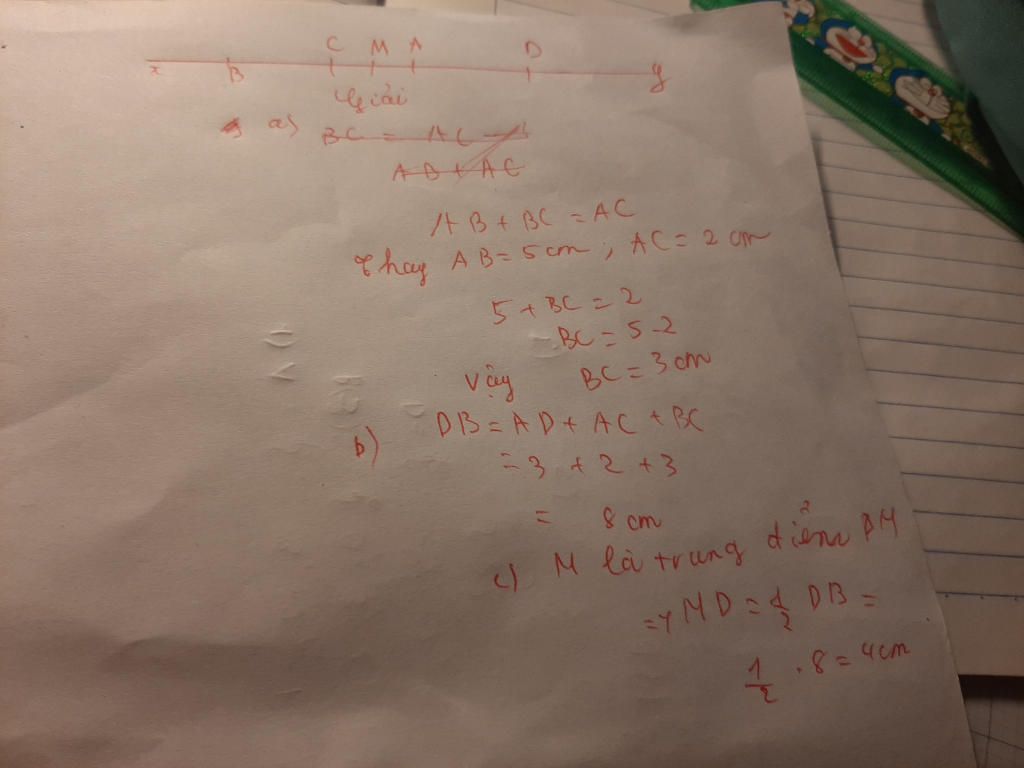 C M A D
x B y
Giải
a) BC = AC -
AD + AC
AB + BC = AC
Thay AB = 5 cm ; AC = 2 cm
5 + BC = 2
BC = 5 - 2
Vậy BC = 3 cm
b) DB = AD + AC + BC
= 3 + 2 + 3
= 8 cm
c) M là trung điểm
=> MD = 1/2 DB =
1/2 . 8 = 4 cm